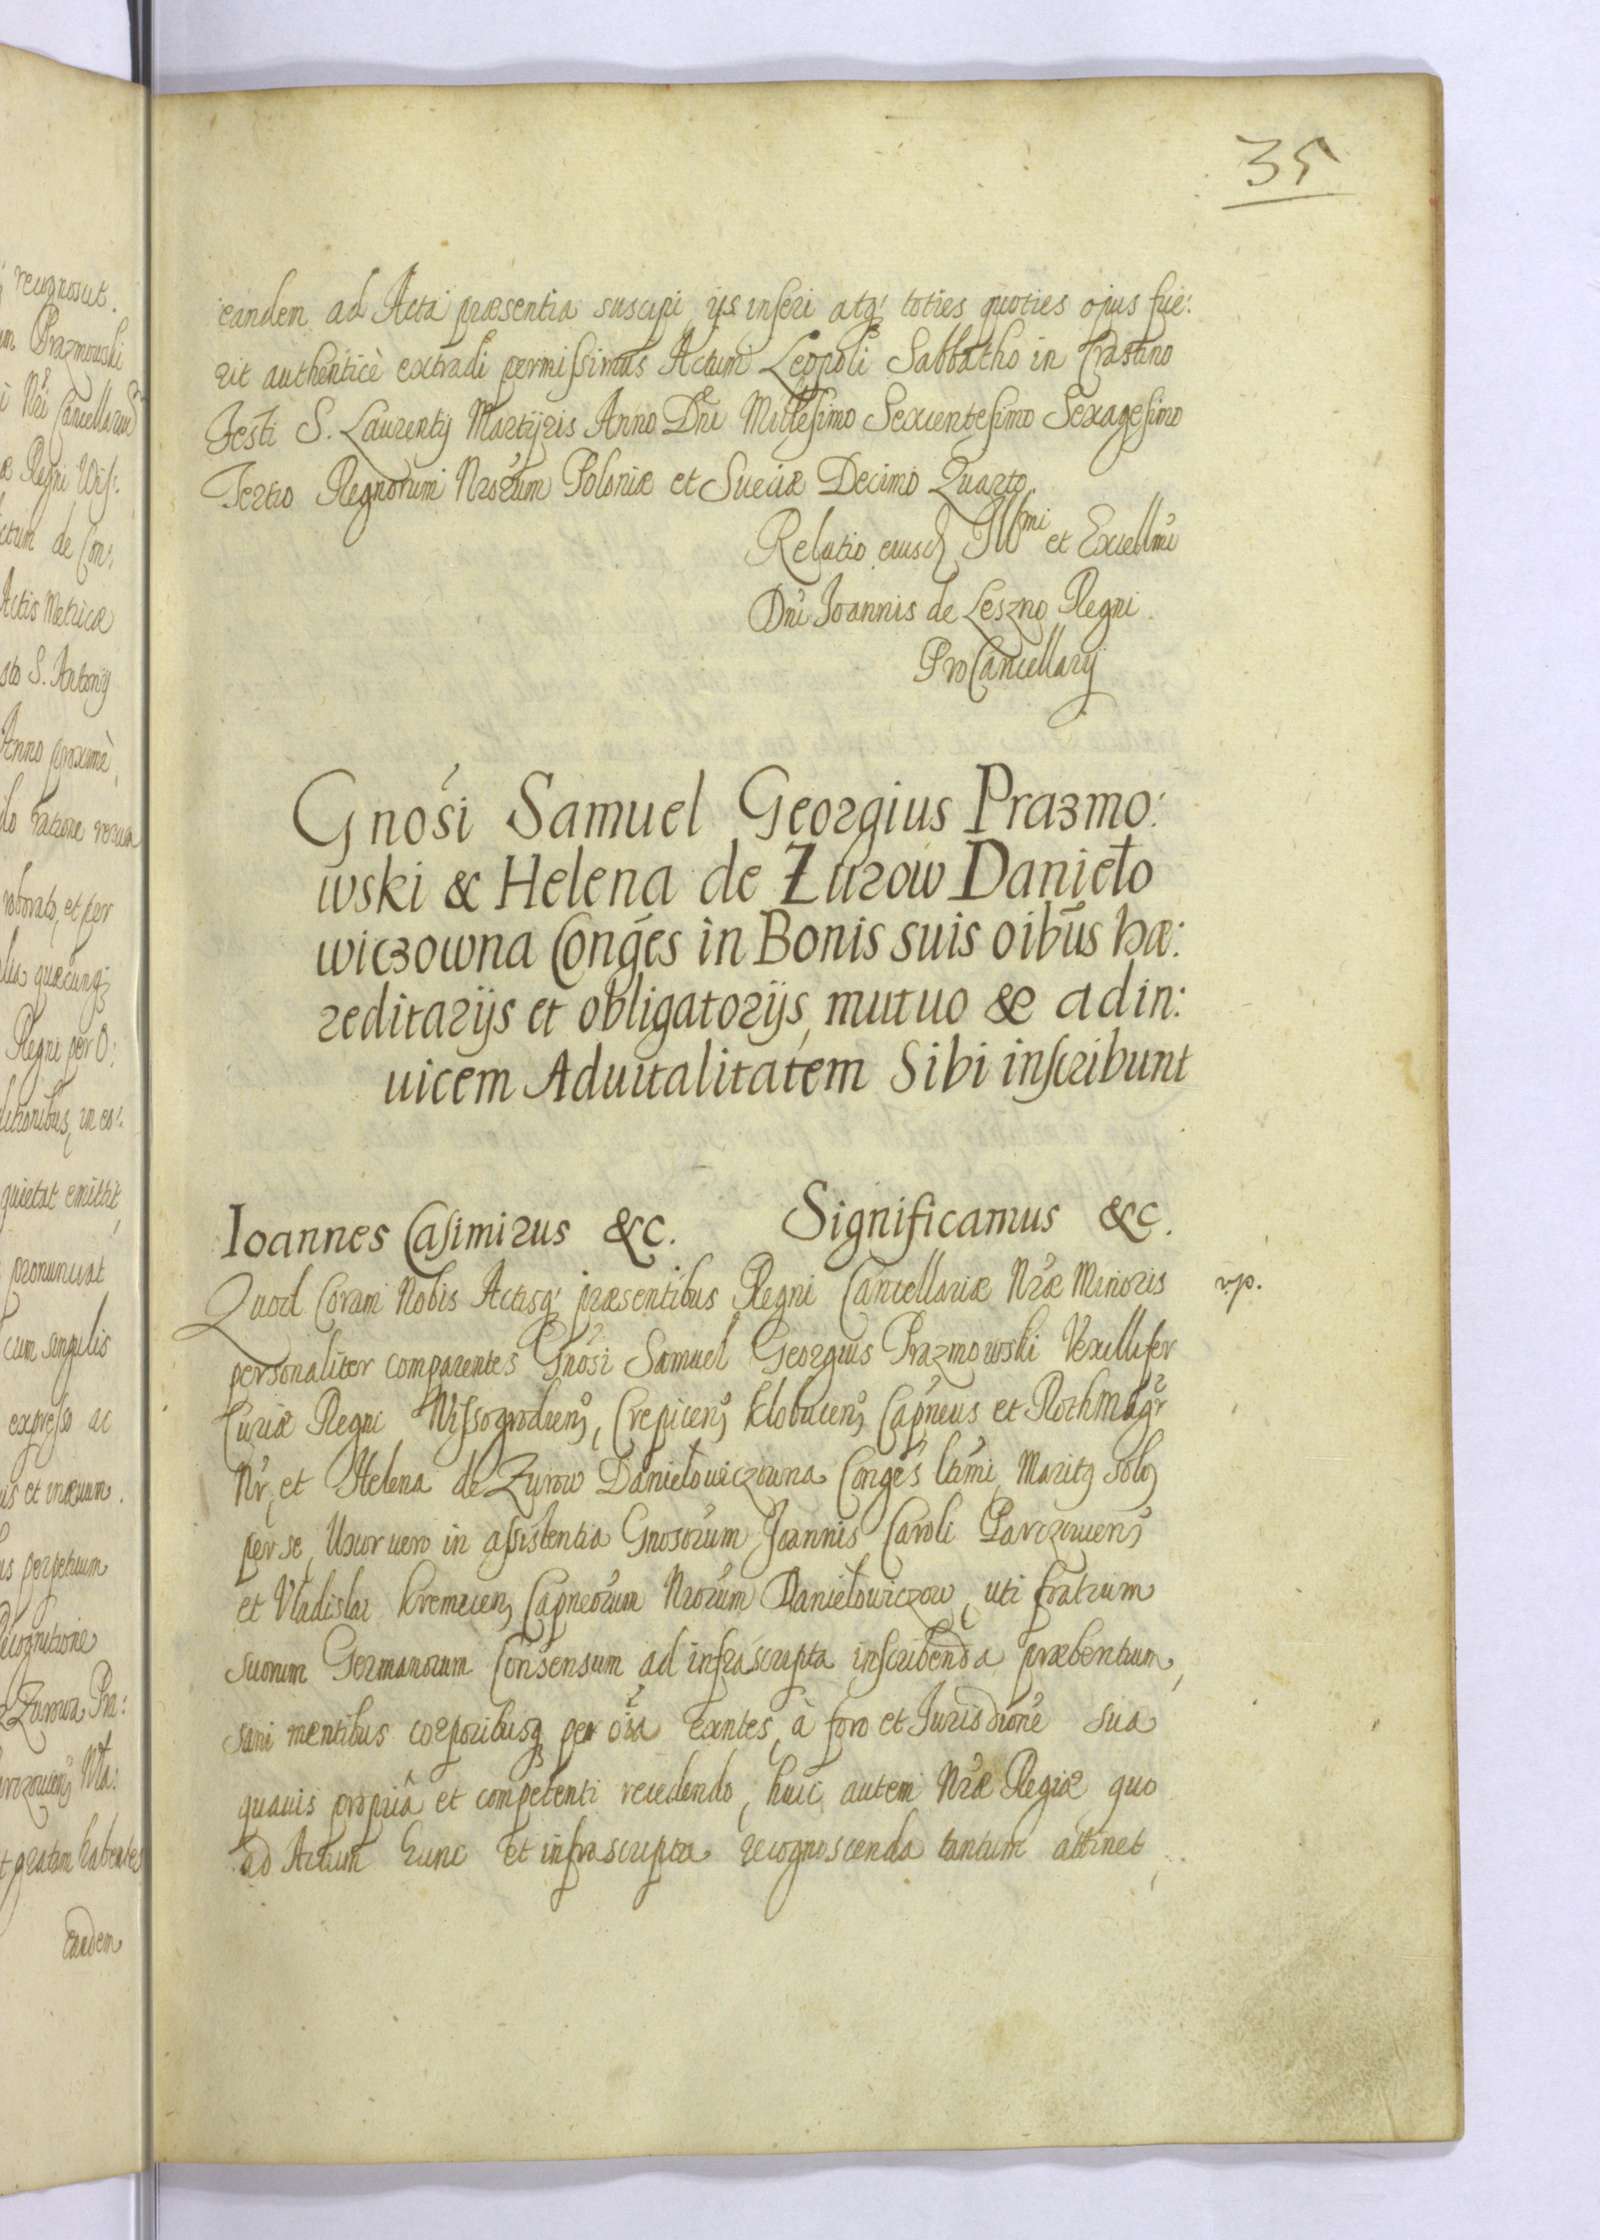 35
eandem ad Acta præsentia suscipi ijs inseri atq; toties quoties opus fue:
rit authenticè extradi permissimus Actum Leopoli Sabbatho in Crastino
Festi S. Laurentij Martyris Anno Dni Millesimo Sexcentesimo Sexagesimo
Tertio Regnorum Nrorum Poloniæ et Sueciæ Decimo Quarto.
Relatio eiusd Illmi et Excellmi
Dni Joannis de Leszno Regni
ProCancellarij
Gnosi Samuel Georgius Prazmo:
wski & Helena de Zurow Danieło
wiczowna Conges in Bonis suis oibus hæ:
reditarijs et obligatorijs, mutuo & adin:
uicem Aduitalitatem Sibi inscribunt
Ioannes Casimirus &c. Significamus &c.
Quod Coram Nobis Actisq; præsentibus Regni Cancellariæ Nræ Minoris
personaliter comparentes Gnosi Samuel Georgius Prazmowski Vexillifer
Curiæ Regni Wissogrodien, Crepicen, Klobucen, Capneus et Rothmagr
Nr, et Helena de Zurow Daniełowiczowna Conges ltimi, Marit9
per se, Uxor uero in assistentia Gnosorum Joannis Caroli Parczouien,
et Vladislai Kremecen, Capneorum Nrorum Daniełowiczow, uti fratrum
suorum Germanorum Consensum ad infrascripta inscribenda præbentium,
sani mentibus corporibusq; per oia exntes, à foro et Jurisdione sua
quauis propriâ et competenti recedendo, huic autem Nræ Regiæ quo
ad Actum hunc et infrascripta recognoscenda tantum attinet,
recognosut.
Prazmouski
Nri Cancellarium
Regni
ctum de Con:
Actis Metricæ
S. Antonij
Anno proximè
ratione
roborato, et per
quæcunq;
Regni per O:
in eo:
quietat emittit,
pronunciat
cum singulis
expresso ac
is et inæuum.
perpetuum
Recognitione
Zurowa Pra:
gratam habentes
Eandem